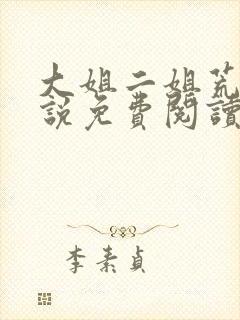 大姐二姐荒
說免費閱讀
李素貞